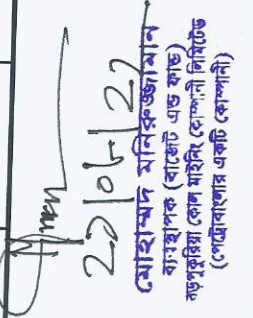 মোহাম্মদ মনিরুজ্জামান
ব্যবস্থাপক (বাজেট এন্ড ফান্ড)
বড়পুকুরিয়া কোল মাইনিং কোম্পানী লিমিটেড
(পেট্রোবাংলার একটি কোম্পানী)